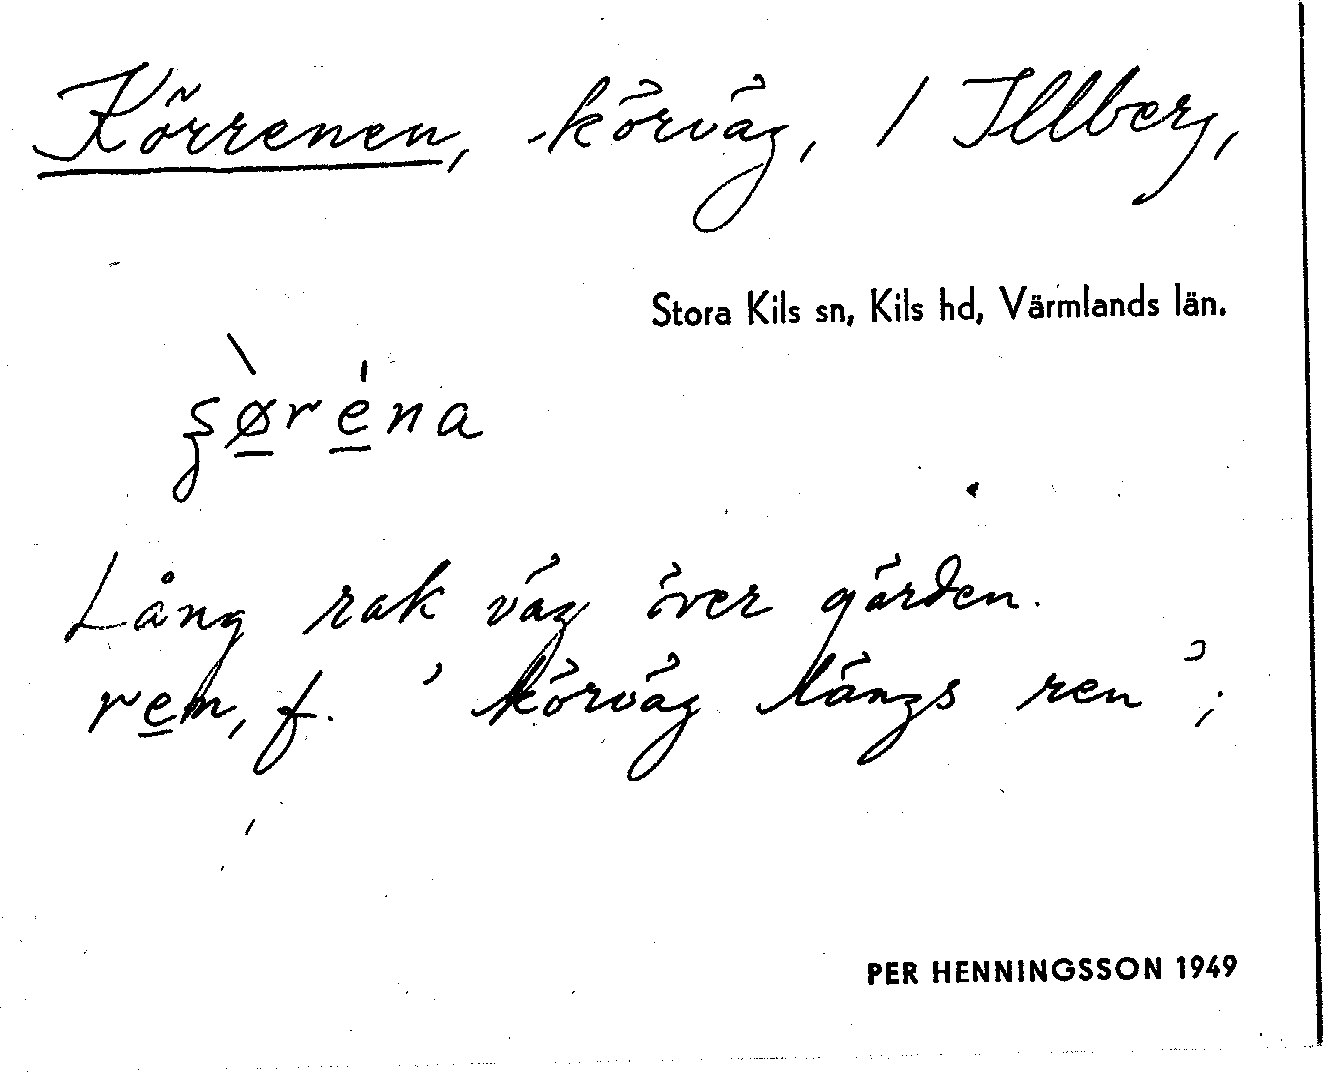 Körrenen, körväg, / Illberg,
Stora Kils sn, Kils hd, Värmlands län.
ʂø̲̀re̲̍na
Lång rak väg över gärden.
re̲n, f. ’körväg längs ren’;
PER HENNINGSSON 1949